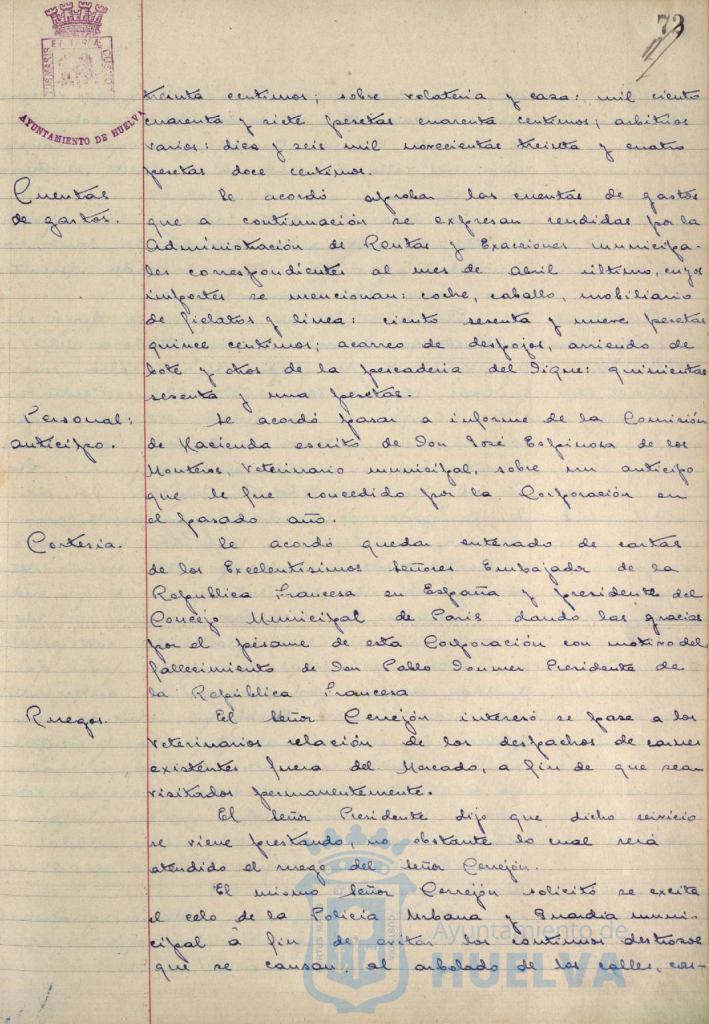 73
PORTUS MARIS ET TERRAE CUSTODIA
AYUNTAMIENTO DE HUELVA
treinta centimos; sobre volateria y caza: mil ciento
cuarenta y siete pesetas cuarenta centimos; arbitrios
varios: diez y seis mil novecientas treinta y cuatro
pesetas doce centimos.
Cuentas
de gastos.
Se acordó aprobar las cuentas de gastos
que a continuación se expresan rendidas por la
Administración de Rentas y Exacciones municipa-
les correspondientes al mes de abril último, cuyos
importes se mencionan: coche, caballo, mobiliario
de fielatos y linea: ciento sesenta y nueve pesetas
quince centimos; acarreo de despojos, arriendo de
bote y otros de la pescaderia del Dique: quinientas
sesenta y una pesetas.
Personal:
anticipo.
Se acordó pasar a informe de la Comisión
de Hacienda escrito de Don José Espinosa de los
Monteros, Veterinario municipal, sobre un anticipo
que le fue concedido por la Corporación en
el pasado año.
Cortesia.
Se acordó quedar enterado de cartas
de los Excelentísimos Señores Embajador de la
Republica Francesa en España y presidente del
Concejo Municipal de Paris dando las gracias
por el pésame de esta Corporación con motivo del
fallecimiento de Don Pablo Doumer Presidente de
la República Francesa
Ruegos.
El Señor Cerrejón interesó se pase a los
Veterinarios relación de los despachos de carnes
existentes fuera del Mercado, a fin de que sean
visitados permanentemente.
El Señor Presidente dijo que dicho servicio
se viene prestando, no obstante lo cual será
atendido el ruego del Señor Cerrejón.
El mismo Señor Cerrejón solicitó se excite
el celo de la Policia Urbana y Guardia muni-
cipal á fin de evitar los continuos destrozos
que se causan al arbolado de las calles, cas-
Ayuntamiento de
HUELVA